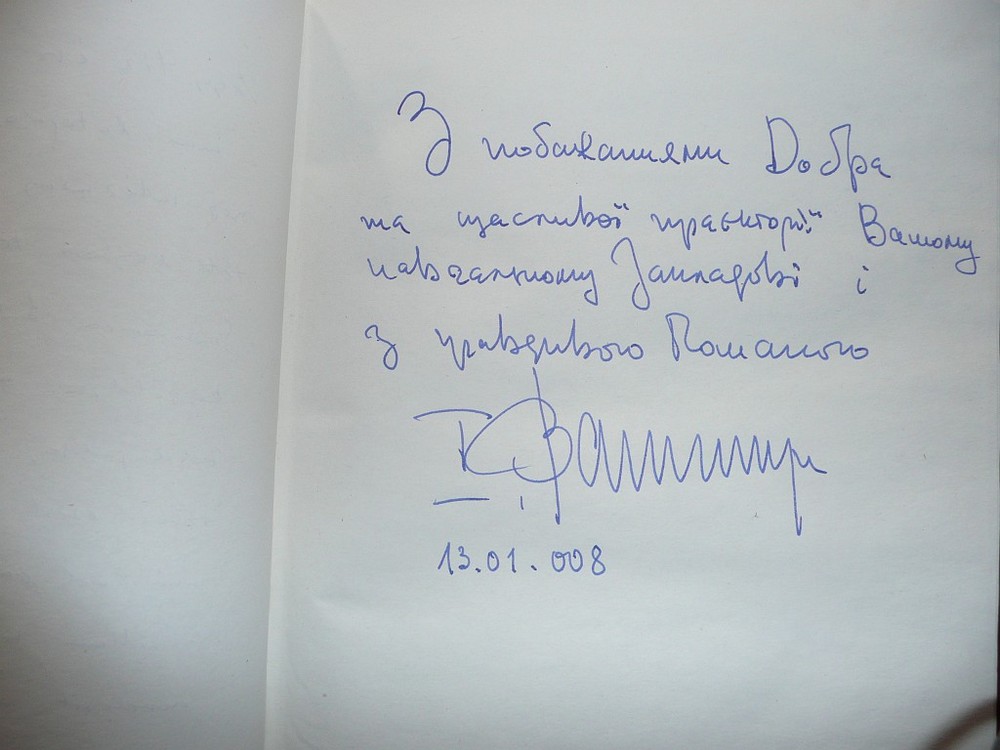 З побажаннями Добра
та щасливої траєкторії Вашому
навчальному Закладові і
з правдивого Поташого
13.01.008